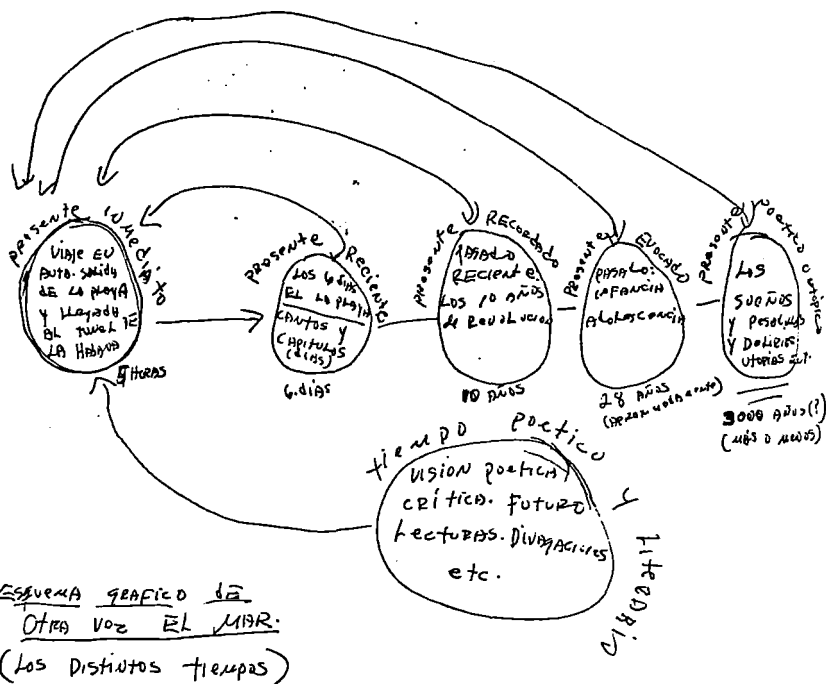 PRESENTE INMEDIATO
VIAJE EN
AUTO. SALIDA
DE LA PLAYA
Y LLEGADA
AL TUNEL DE
LA HABANA
HORAS
PRESENTE RECIENTE
LOS 6 DIAS
EN LA PLAYA
CANTOS Y
CAPITULOS
(DIAS)
6. DIAS
PRESENTE RECORDADO
PASADO
RECIENTE.
LOS 10 AÑOS
de REVOLUCION
10 AÑOS
PRESENTE EVOCADO
PASADO:
INFANCIA
ADOLESCENCIA
28 AÑOS
(APROXIMADAMENTE)
PRESENTE POETICO O UTOPICO
LOS
SUEÑOS
Y PESADILLAS
Y DELIRIOS
UTOPIAS
3000 AÑOS (?)
(MÁS O MENOS)
tiempo poetico y literario
VISION POETICA
CRÍTICA. FUTURO
LECTURAS. DIVAGACIONES
etc.
ESQUEMA GRAFICO DE
OTRA VEZ EL MAR.
(LOS DISTINTOS tiempos)